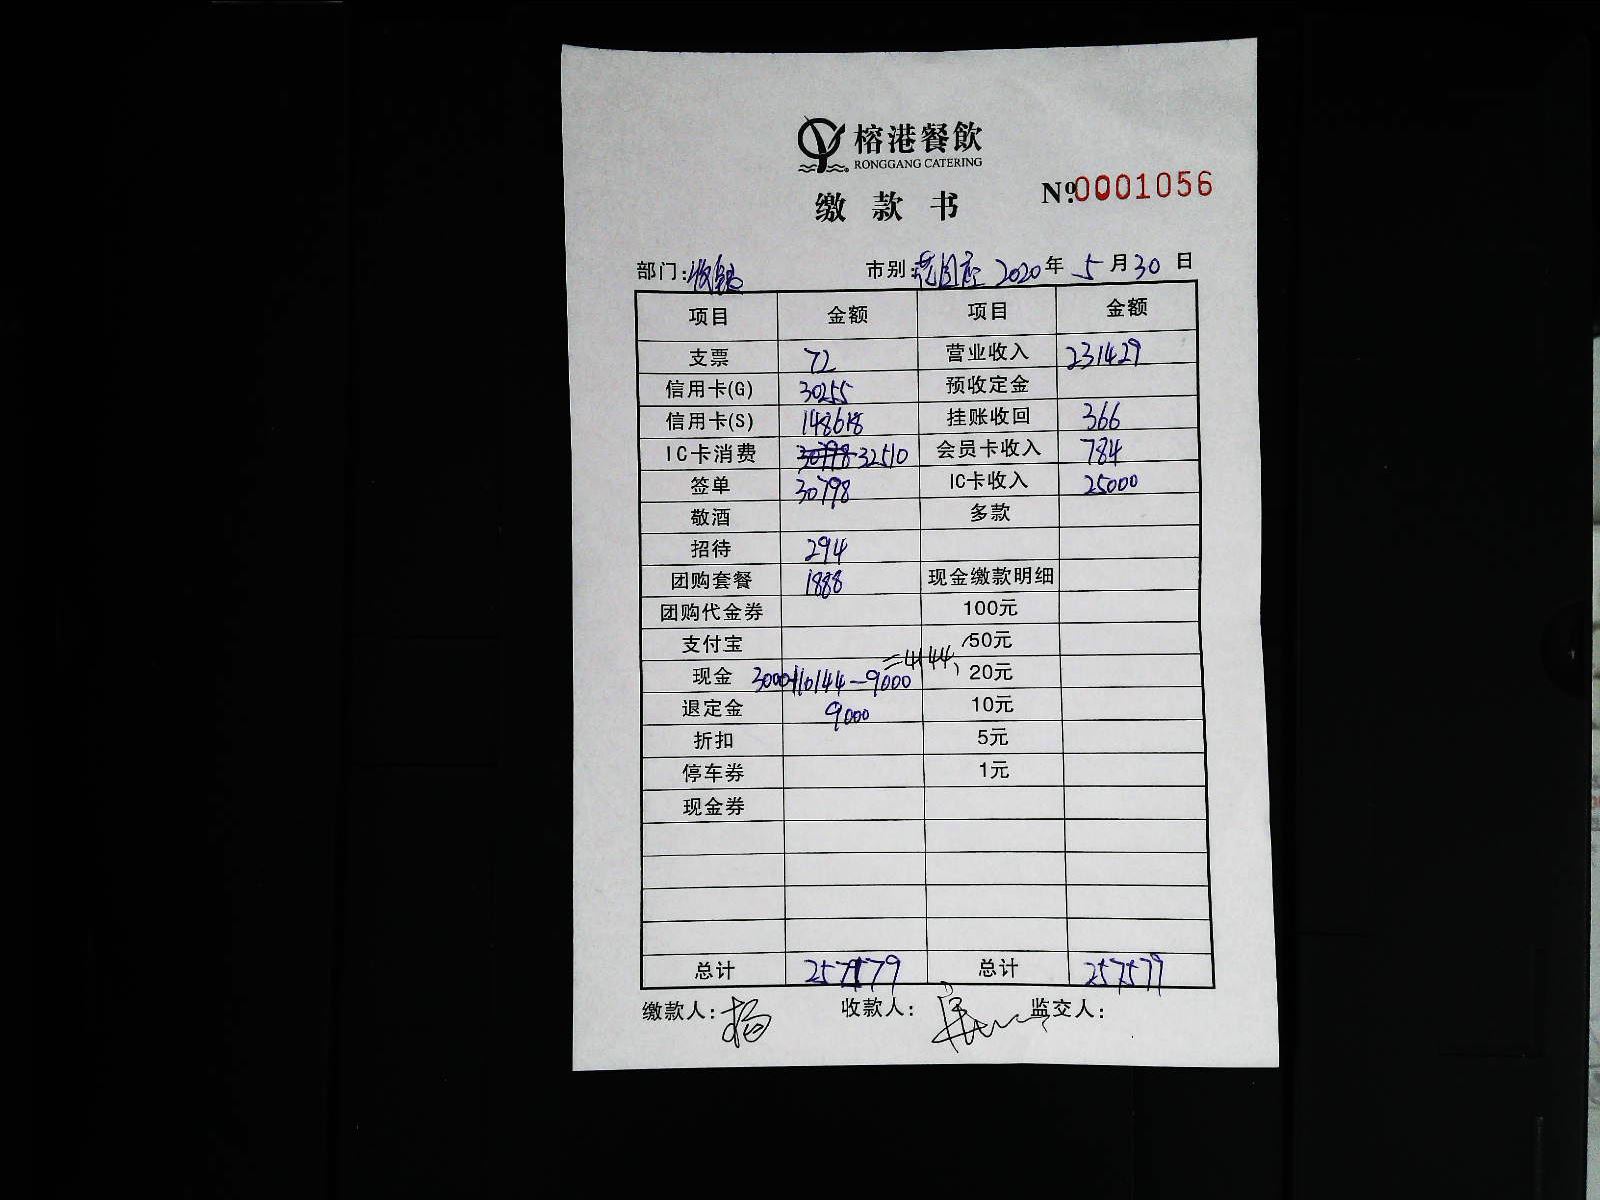 榕港餐飲
RONGGANG CATERING
缴款书 №0001056
部门:收银 市别:花园店 2020年5月30日
项目 金额 项目 金额
支票 72 营业收入 231429
信用卡(G) 30255 预收定金
信用卡(S) 148618 挂账收回 366
IC卡消费 30798 32510 会员卡收入 784
签单 30798 IC卡收入 25000
敬酒 多款
招待 294
团购套餐 1888 现金缴款明细
团购代金券 100元
支付宝 50元
=4144
现金 3000+10144-9000 20元
退定金 9000 10元
折扣 5元
停车券 1元
现金券
总计 257579 总计 257579
缴款人:杨 收款人: 监交人: